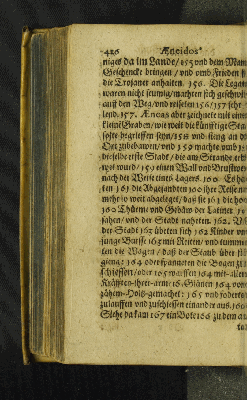 426 Æneidos
niges da im Lande/155 und dem Mann
Geschencke bringen/und umb Frieden
die Trojaner anhalten. 156. Die Legaten
waren nicht seumig/machten sich geschwind
auff den Weg/und reiseten 156/157 sehr
lend. 157. Æneas aber zeichnete mit einem
kleinē Graben/wie weit die künfftige Stadt
solte begriffen seyn/158 und fieng an den
Ort zubebawen/und 159 machte umb
dieselbe erste Stadt/die am Strande gebawet
wurd/159 einen Wall und Brustwehr
nach der Weise eines Lagers. 160. Es hatten
161 die Abgesandten 160 ihre Reise nun
mehr so weit abgeleget/daß sie 161 die hohen
160 Thürme und Gebäw der Latiner
sahen/und der Stadt naheten. 162. Vor
der Stadt 163 übeten sich 162 Kinder und
junge Bursse 163 mit Reiten/und tummelten
die Wagen/daß der Staub über sich
gieng: 164 oder spanneten die Bogen
schiessen/oder 165 warffen 164 mit allen
Kräfften ihrer arme 165 Glänen 164 von
zähem Holtz gemachet: 165 und foderten
zulauffen und zuschiessen einander aus. 166
Siehe da kam 167 ein Bote 166 zu dem